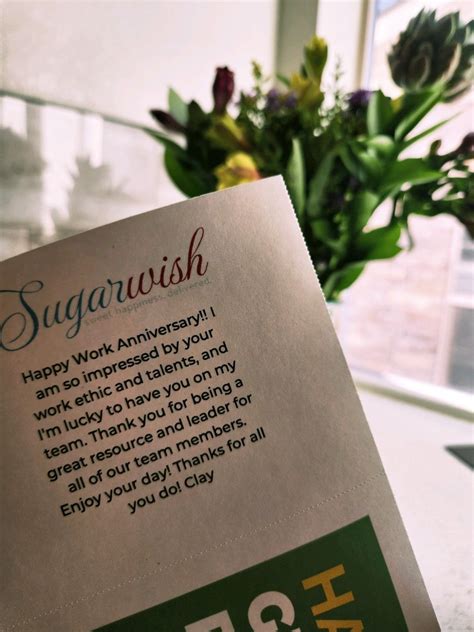 Sugarwish
sweet happiness, delivered.
Happy Work Anniversary!! I
am so impressed by your
work ethic and talents, and
I'm lucky to have you on my
team. Thank you for being a
great resource and leader for
all of our team members.
Enjoy your day! Thanks for all
you do! Clay
HA
GE